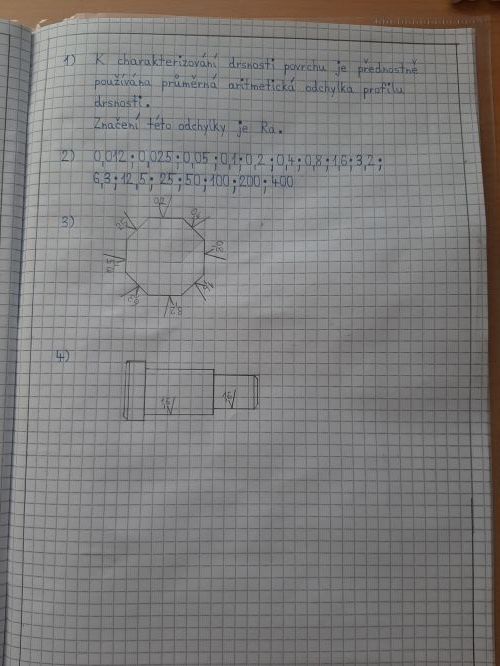 1) K charakterizování drsnosti povrchu je přednostně
používána průměrná aritmetická odchylka profilu
drsnosti.
Značení této odchylky je Ra.
2) 0,012 ; 0,025 ; 0,05 ; 0,1 ; 0,2 ; 0,4 ; 0,8 ; 1,6 ; 3,2 ;
6,3 ; 12,5 ; 25 ; 50 ; 100 ; 200 ; 400
3)
4)